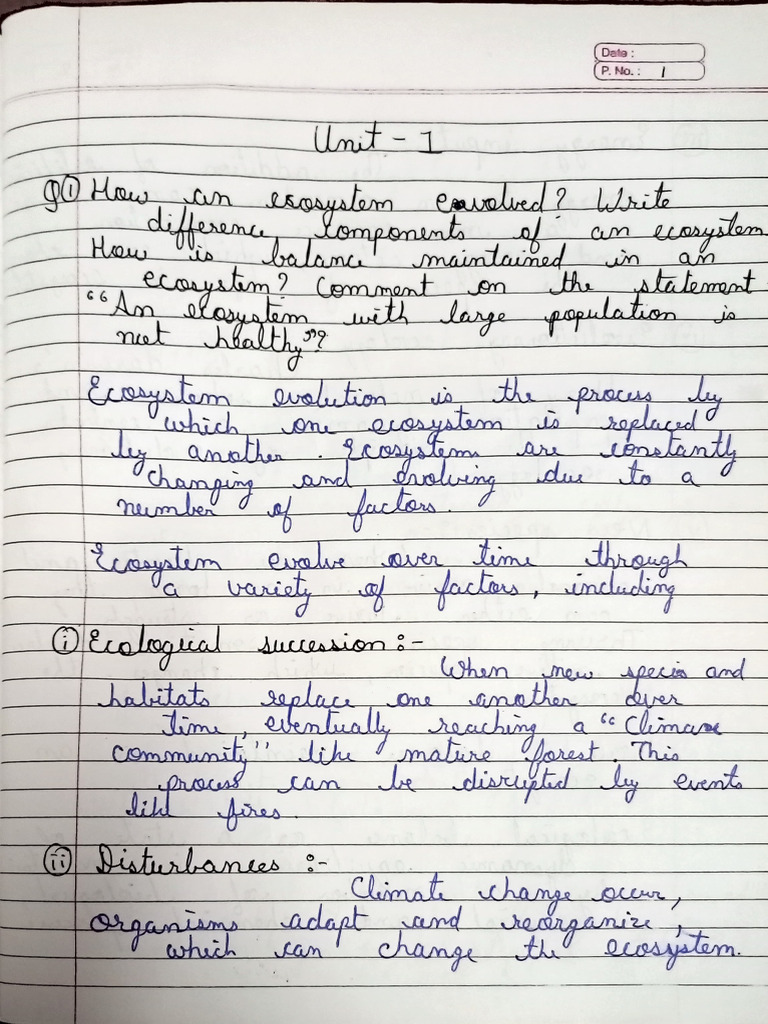 Date :
P. No. : 1
Unit - 1
Q① How an ecosystem envolved? Write
difference components of an ecosystem.
How is balance maintained in an
ecosystem? Comment on the statement
“An ecosystem with large population is
not healthy”?
Ecosystem evolution is the process by
which one ecosystem is replaced
by another. Ecosystem are constantly
changing and evolving due to a
number of factors.
Ecosystem evolve over time through
a variety of factors, including
ⓘ Ecological succession :-
When new species and
habitats replace one another over
time, eventually reaching a “Climax
community” like mature forest. This
process can be disrupted by events
like fires.
ⓘⓘ Disturbances :-
Climate change occur,
organisms adapt and reorganize,
which can change the ecosystem.